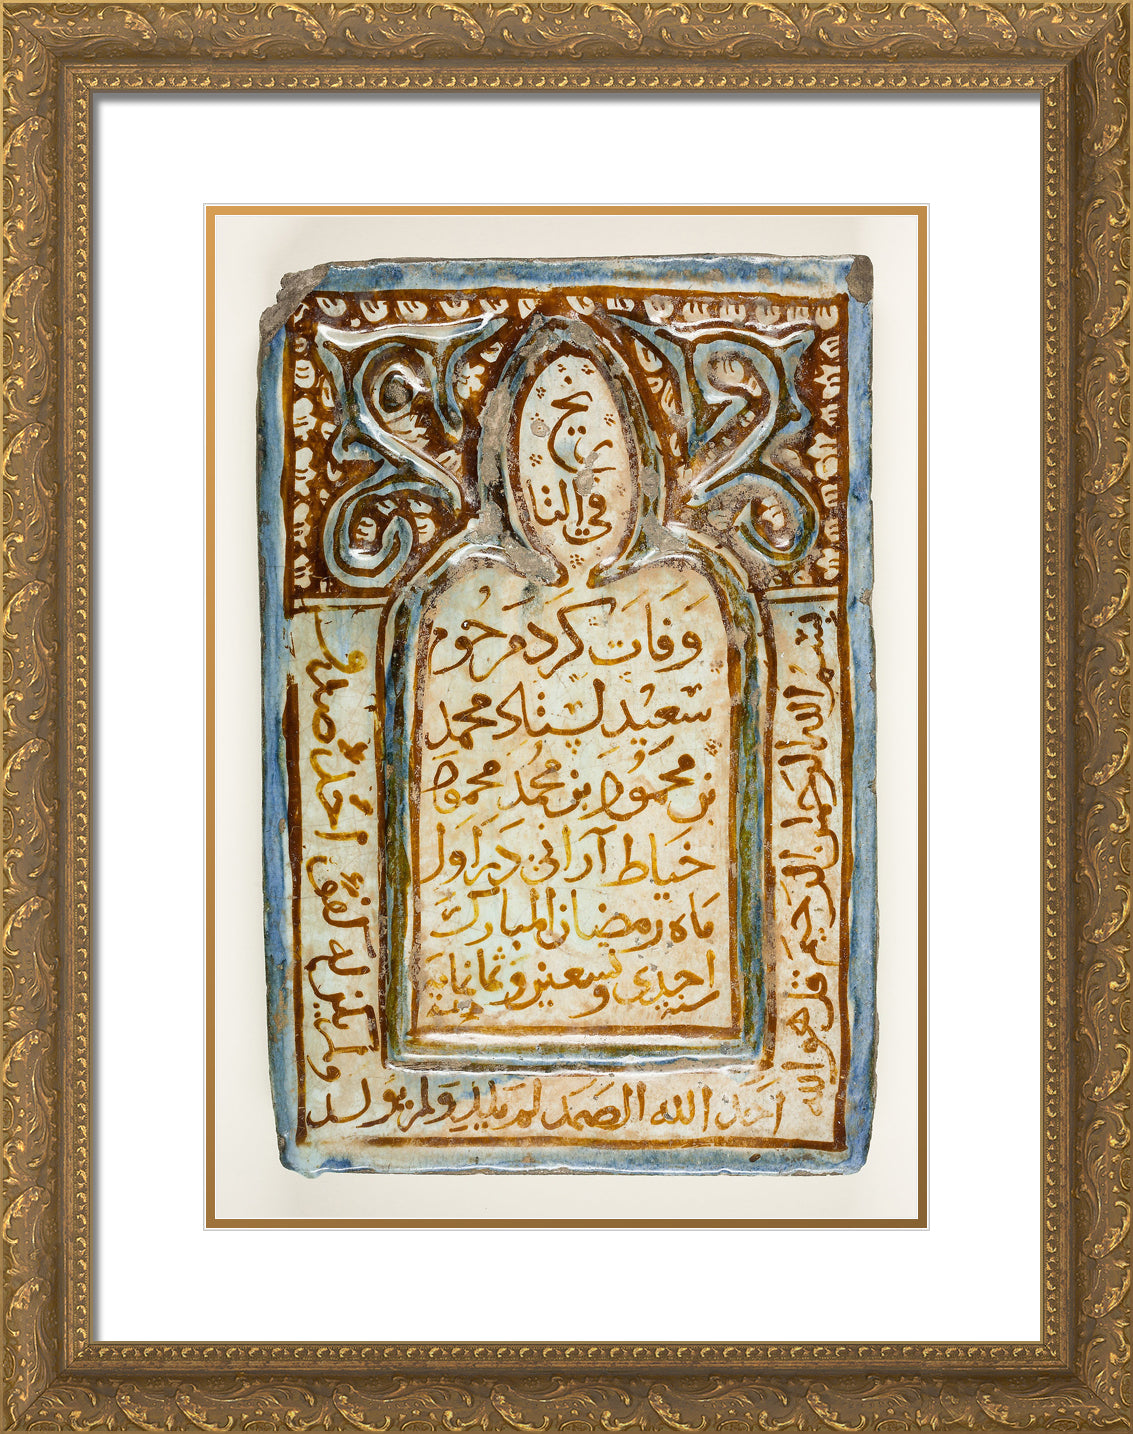 في التا
ريخ
وَفَات كَرد مَرحُوم
سَعِيد استاد محمد
بن محمود بن محمد محمود
خياط آرانی در اول
ماه رمضان المبارک
سنة احدی و تسعین و ثمانمایة
بسم الله الرحمن الرحيم قل هو الله
احد الله الصمد لم يلد ولم يولد
ولم يكن له كفوا احد